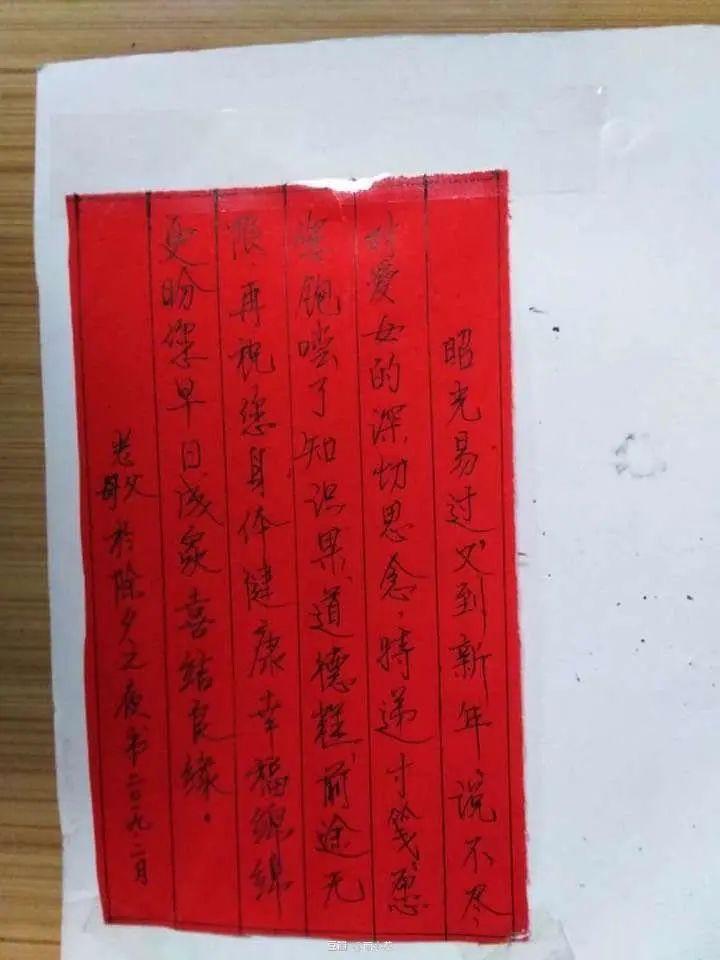 昭光易过又到新年,说不尽
对爱女的深切思念,特递寸笺,愿
您饱尝了知识果、道德糕,前途无
限,再祝您身体健康幸福绵绵
更盼您早日成家喜结良缘。
老父母於除夕之夜书二〇一九.二月